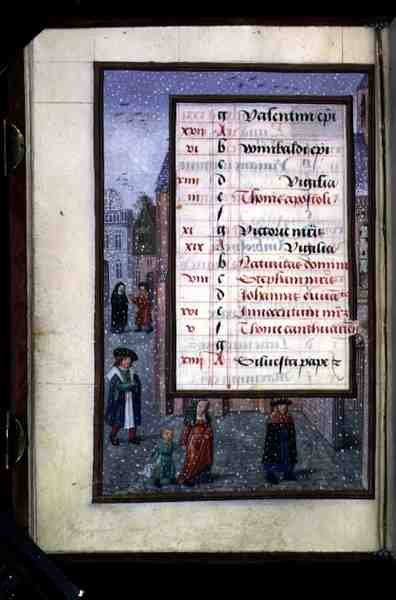 g Valentini epi
xvii A
vi b Wimbaldi epi
c
xiiii d Vigilia
iii e Thome apostoli
f
xi g Victorie mris
xix A Vigilia
b Nativitas domini
viii c Stephani mris
d Johannis
xvi e Innocentium
v f Thome cantuarien
g
xiii A Silvestri pape